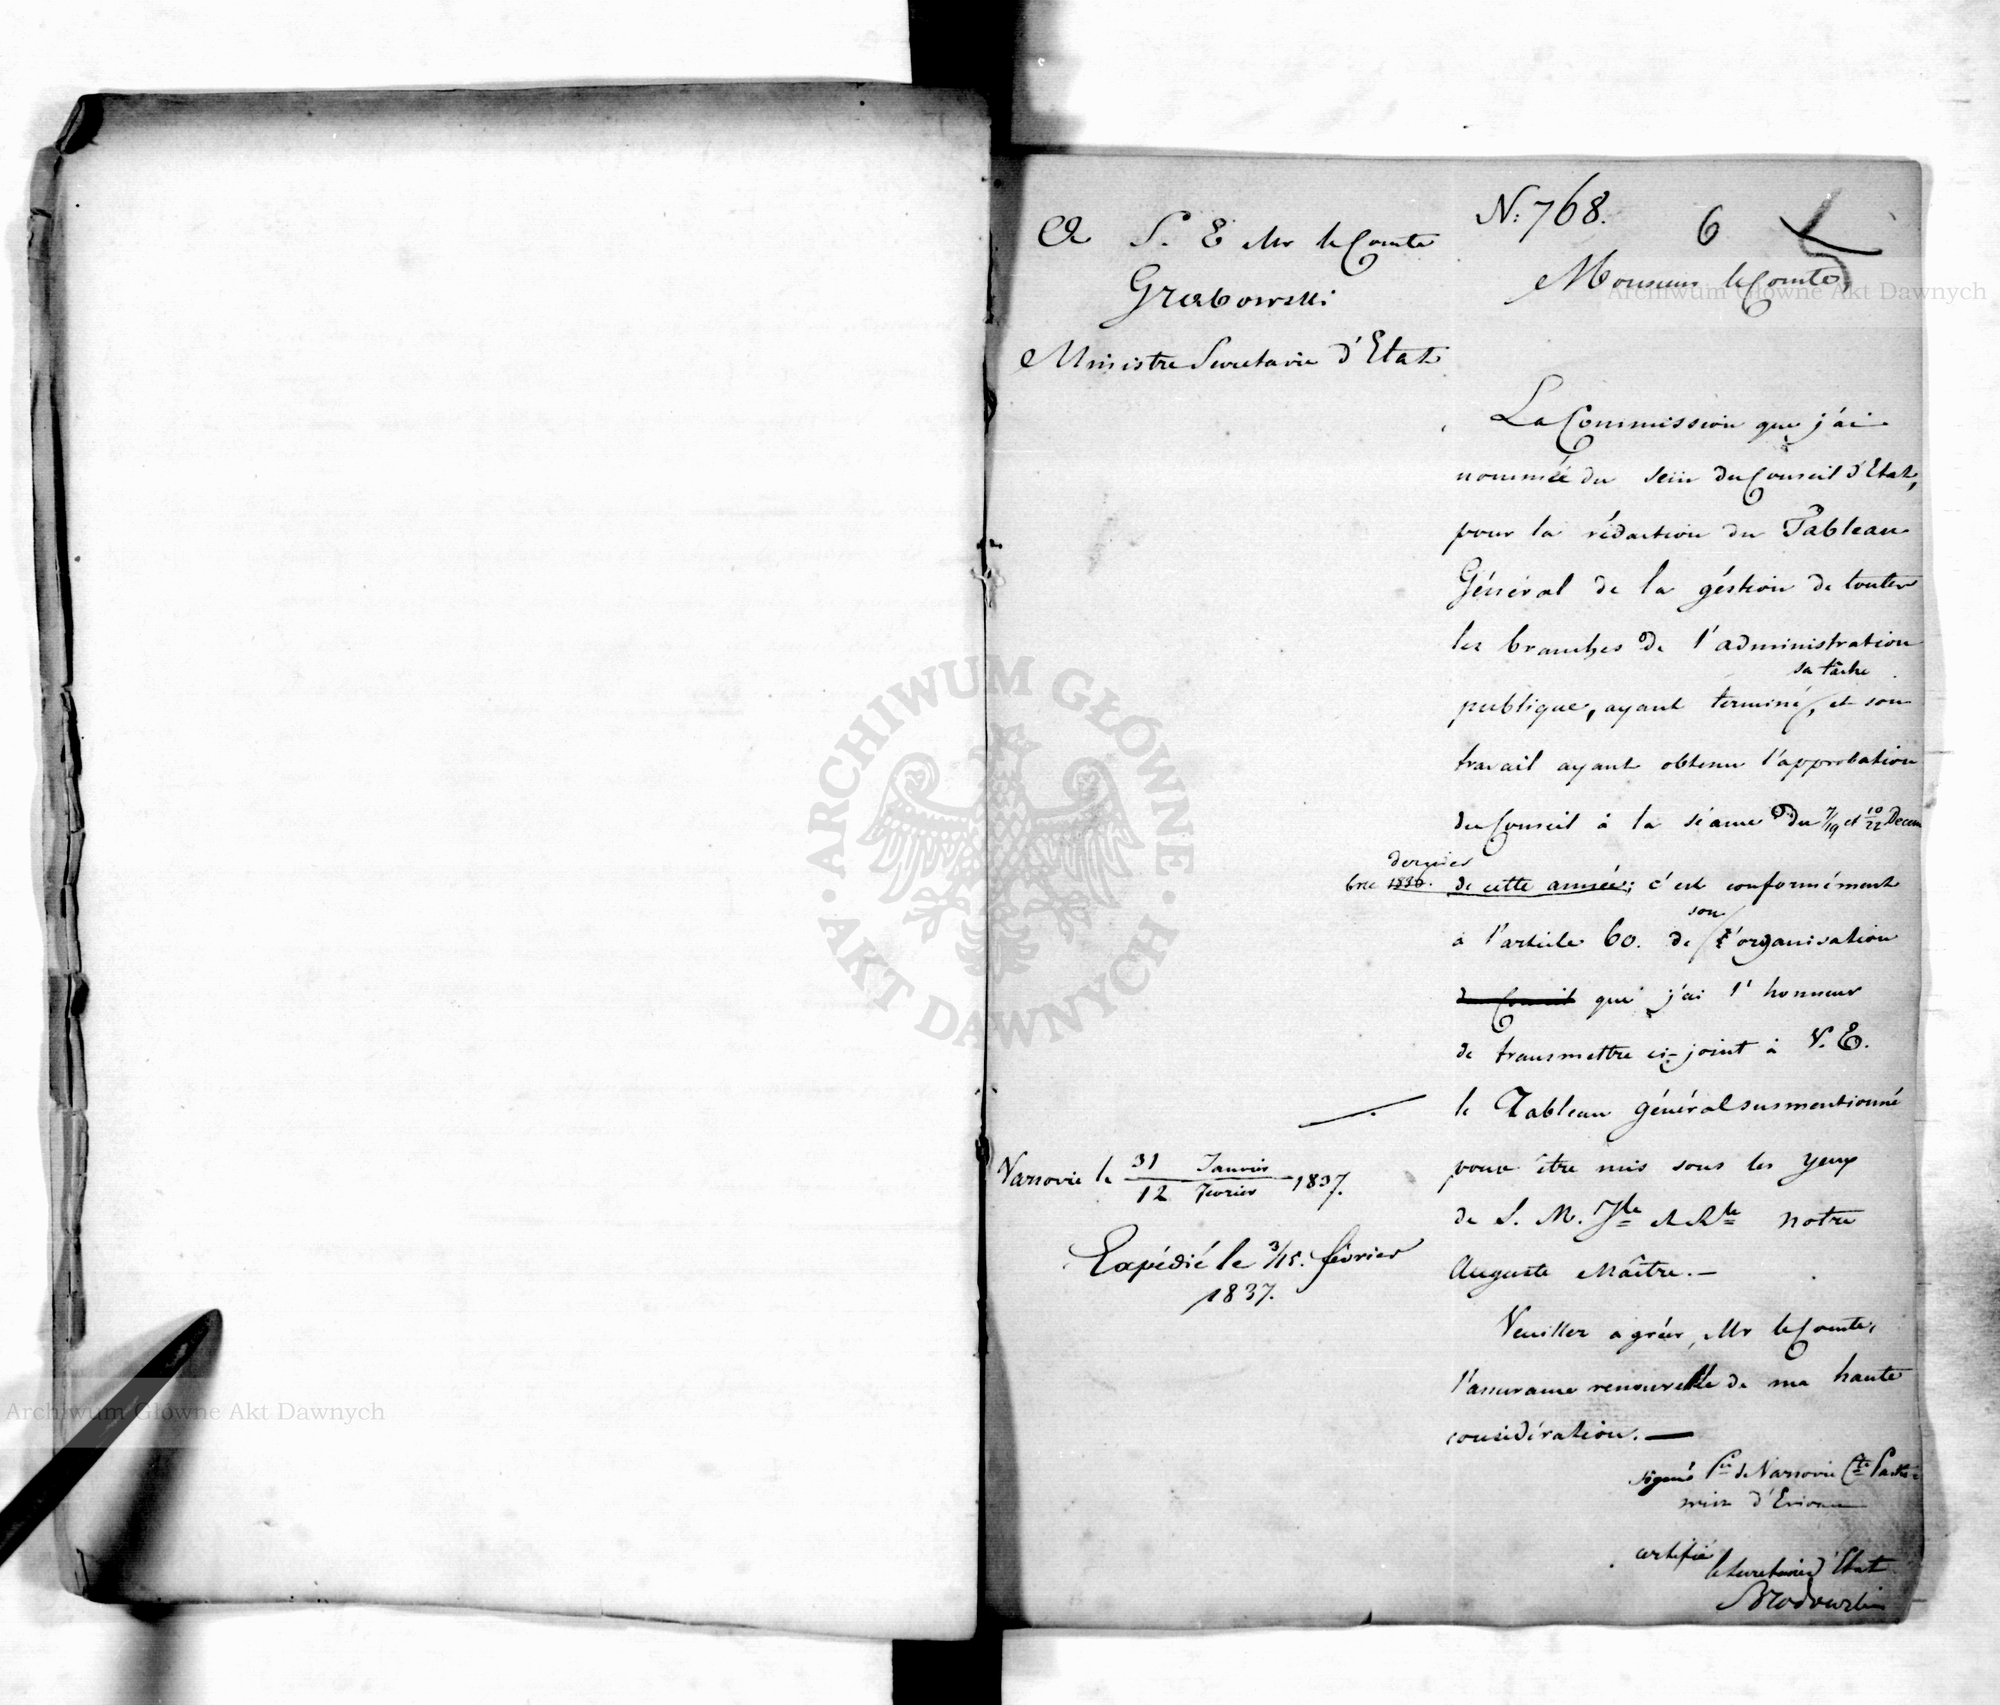 N: 768.
6
5
A S. E Mr le Comte
Grabowski
Ministre Secretaire d'Etat
Monsieur le Comte,
La Commission que j'ai
nommée du sein du Conseil d'Etat,
pour la rédaction du Tableau
Général de la géstion de toutes
les branches de l'administration
sa tâche
publique, ayant terminé, et son
travail ayant obtenu l'approbation
du Conseil à la séance du 7/19 et 10/22 Decem
dernier
bre 1836. de cette année; c'est conformément
son
à l'article 60. de l'organisation
du Conseil que j'ai l'honneur
de transmettre ci-joint à V. E.
le Tableau général susmentionné
pour être mis sous les yeux
de S. M. Ile et Rle notre
Auguste Maître.—
Veuillez agréer, Mr le Comte,
l'assurance renouvellée de ma haute
considération.—
signé Pce de Varsovie Cte Paske-
wicz d'Erivan
certifié
le Secretaire d'Etat
Brodowski
Varsovie le 31 Janvier / 12 Fevrier 1837.
Expédié le 3/15. février
1837.
ARCHIWUM GŁÓWNE · AKT DAWNYCH ·
Archiwum Główne Akt Dawnych
Archiwum Główne Akt Dawnych